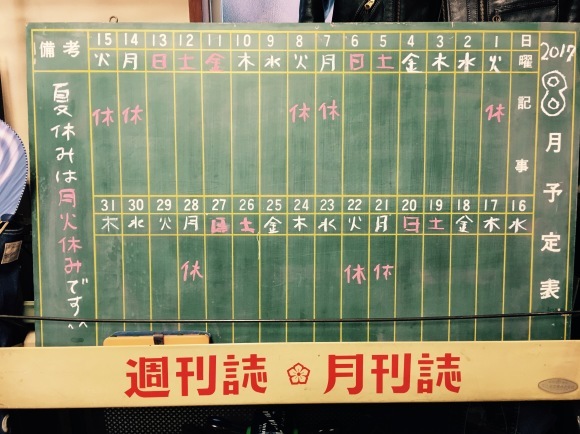 2017 8月予定表
備考 15 14 13 12 11 10 9 8 7 6 5 4 3 2 1 日
火 月 日 土 金 木 水 火 月 日 土 金 木 水 火 曜
休 休 休 休 休 記事
31 30 29 28 27 26 25 24 23 22 21 20 19 18 17 16
木 水 火 月 日 土 金 木 水 火 月 日 土 金 木 水
休 休 休
夏休みは月火休みです^^
週刊誌 月刊誌